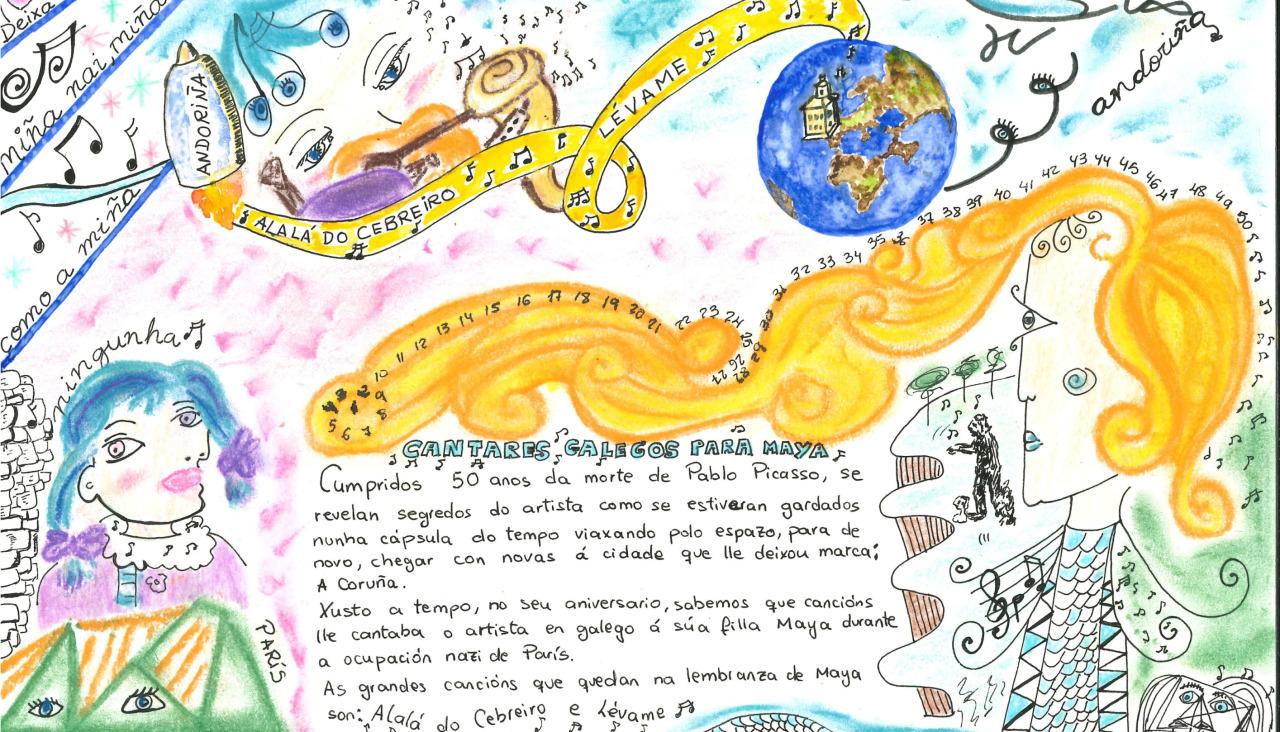 Deixa
miña nai, miña
como a miña
ANDORIÑA
ALALÁ DO CEBREIRO
LÉVAME
andoriña
mingunha
1 2 3 4 5 6 7 8 9 10 11 12 13 14 15 16 17 18 19 20 21 22 23 24 25 26 27 28 29 30 31 32 33 34 35 36 37 38 39 40 41 42 43 44 45 46 47 48 49 50
CANTARES GALEGOS PARA MAYA
Cumpridos 50 anos da morte de Pablo Picasso, se
revelan segredos do artista como se estiveran gardados
nunha cápsula do tempo viaxando polo espazo, para de
novo, chegar con novas á cidade que lle deixou marca:
A Coruña.
Xusto a tempo, no seu aniversario, sabemos que cancións
lle cantaba o artista en galego á súa filla Maya durante
a ocupación nazi de París.
As grandes cancións que quedan na lembranza de Maya
son: Alalá do Cebreiro e Lévame
PARÍS